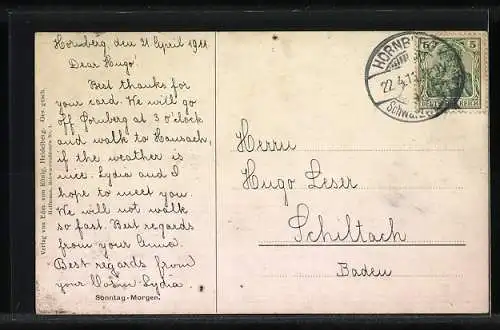 Hornberg, den 21 April 1911.
Dear Hugo!
Best thanks for
your card. We will go
off Hornberg at 3 o'clock
and walk to Hausach,
if the weather is
nice. Lydia and I
hope to meet you.
We will not walk
so fast. Best regards
from your Anna.
Best regards from
your Lydia.
Sonntag-Morgen.
Verlag von Edm. von König, Heidelberg. Ges. gesch.
HORNB
22.4.11
Schwarz
5 5
DEUTSCHES REICH
Herrn
Hugo Leser
Schiltach
Baden